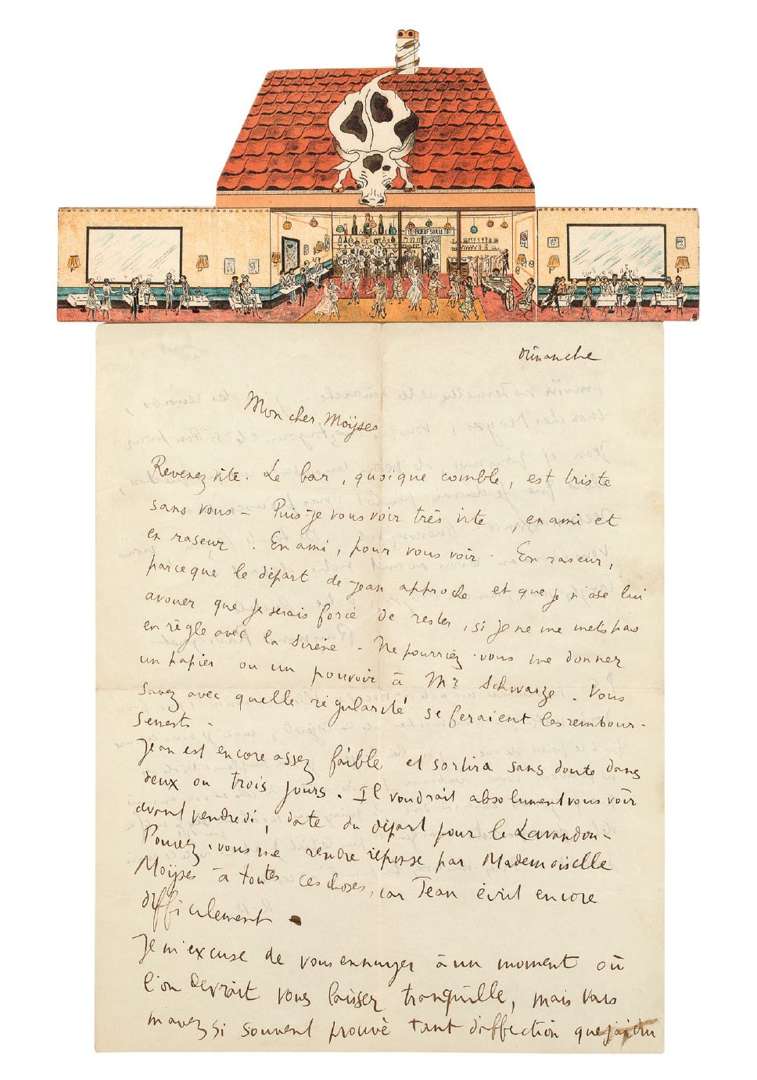 dimanche
Mon cher Moÿses
Revenez vite. Le bar, quoique comble, est triste
sans vous – Puis-je vous voir très vite, en ami et
en raseur. En ami, pour vous voir. En raseur,
parceque le départ de Jean approche et que je n'ose lui
avouer que je serais forcé de rester, si je ne me mets pas
en règle avec la sirène. Ne pourriez-vous me donner
un papier ou un pouvoir à Mr Schwarze. Vous
savez avec quelle régularité se feraient les rembour-
sements.
Jean est encore assez faible et sortira sans doute dans
deux ou trois jours. Il voudrait absolument vous voir
avant vendredi, date du départ pour le Lavandou-
Pouvez-vous me rendre réponse par Mademoiselle
Moÿses à toutes ces choses, car Jean écrit encore
difficilement.
Je m'excuse de vous ennuyer à un moment où
l'on devrait vous laisser tranquille, mais vous
m'avez si souvent prouvé tant d'affection que j'ai cru